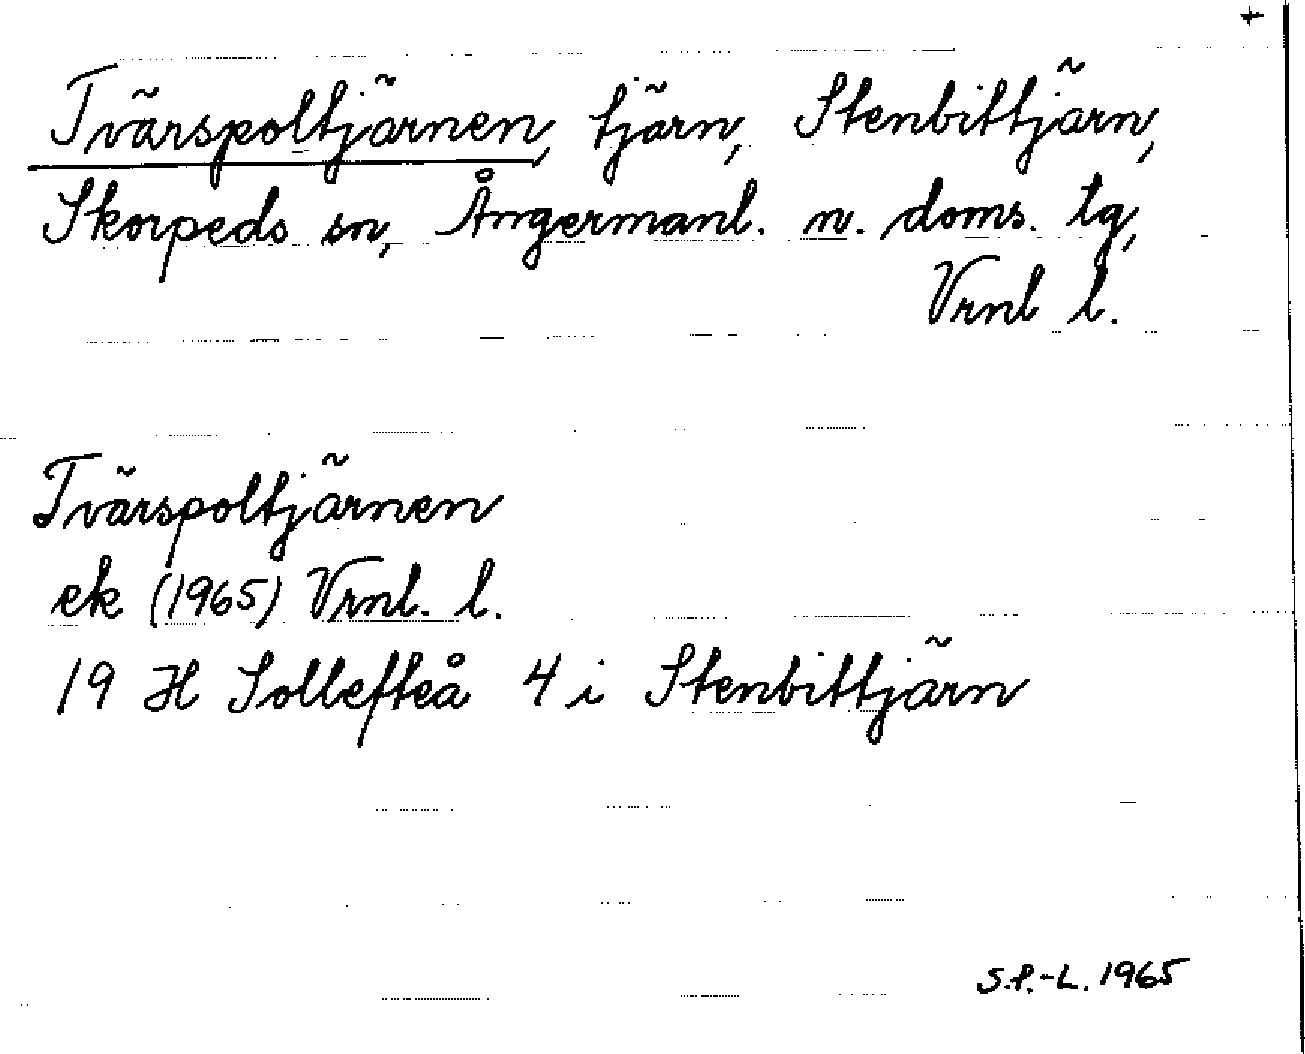 +
Tvärspoltjärnen, tjärn, Stenbittjärn,
Skorpeds sn, Ångermanl. n. doms. tg,
Vrnl l.
Tvärspoltjärnen
ek (1965) Vrnl. l.
19 H Sollefteå 4 i Stenbittjärn
S.P.-L. 1965